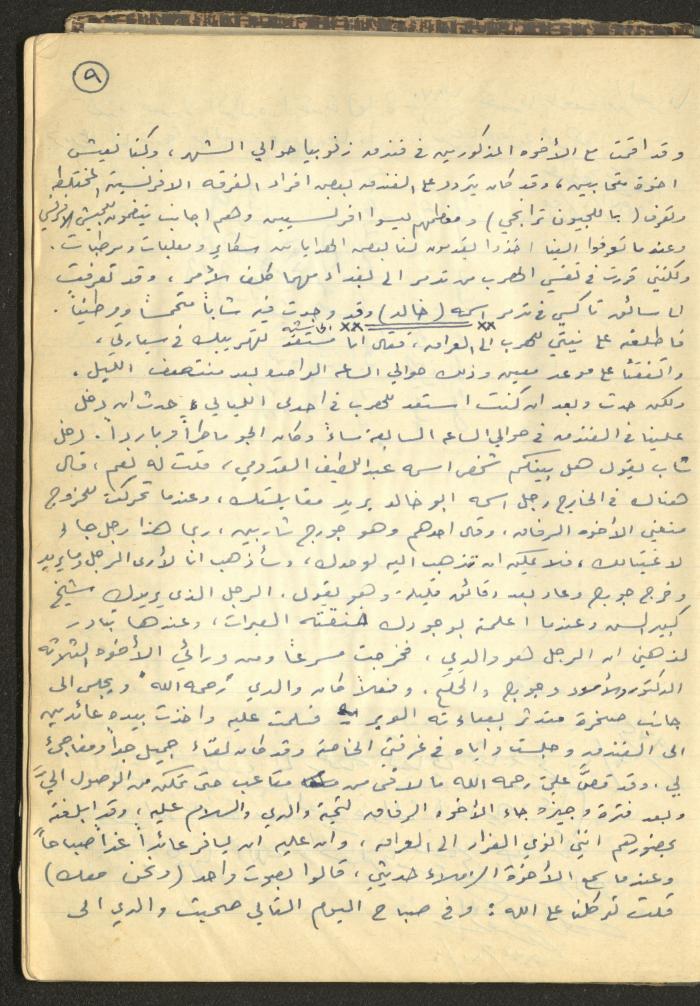 ٩
وقد اقمت مع الأخوه المذكورين في فندق زنوبيا حوالي الشهر، وكنا نعيش
اخوة متحابين، وقد كان يتردد على الفندق بعض افراد الفرقه الافرنسية المختلطه
وتعرف (بالليجيون ترانجي) ومعظمهم ليسوا افرنسيين وهم اجانب ينضمون للجيش الافرنسي
وعندما تعرفوا الينا اخذوا يقدمون لنا بعض الهدايا من سكاير ومعلبات ومرطبات.
ولكنني قررت في نفسي الهرب من تدمر الى بغداد مهما كلف الأمر، وقد تعرفت
الى سائق تاكسي في تدمر اسمه (خالد) وقد وجدت فيه شاباً متحمساً ووطنياً.
فاطلعته على نيتي للهرب الى العراق، فقال انا مستعد لتهريبك في سيارتي،
واتفقنا على موعد معين وذلك حوالي الساعه الواحده بعد منتصف الليل.
ولكن حدث وبعد ان كنت استعد للهرب في احدى الليالي، حدث ان دخل
علينا في الفندق في حوالي الساعه السابعة مساءً وكان الجو ماطراً وبارداً. دخل
شاب يقول هل بينكم شخص اسمه عبد اللطيف القدومي، قلت له نعم، قال
هناك في الخارج رجل اسمه ابو خالد يريد مقابلتك، وعندما تحركت للخروج
منعني الأخوه الرفاق، وقال احدهم وهو جورج شاربين، ربما هذا رجل جاء
لاغتيالك، فلا يمكن ان تذهب اليه لوحدك، وسأذهب انا لأرى الرجل وما يريد
وخرج جورج وعاد بعد دقائق قليلة وهو يقول. الرجل الذي يريدك شيخ
كبير السن وعندما اعلمته بوجودك خنقته العبرات، وعندها تبادر
لذهني ان الرجل هو والدي، فخرجت مسرعاً ومن ورائي الأخوه الثلاثه
الدكتور والأسود وجورج والحلج. وفعلاً كان والدي "رحمه الله" ويجلس الى
جانب صخرة متدثر بعباءته الوبر فسلمت عليه واخذت بيده عائدين
الى الفندق وجلست واياه في غرفتي الخاصة وقد كان لقاء جميل جداً ومفاجئ
لي. وقد قصَّ عليَّ رحمه الله ما لاقى من متاعب حتى تمكن من الوصول اليَّ
وبعد فترة وجيزه جاء الأخوه الرفاق لتحية والدي والسلام عليه، وقد ابلغته
بحضورهم انني انوي الفرار الى العراق، وان عليه ان يسافر عائداً غداً صباحاً
وعندما سمع الأخوة الزملاء حديثي، قالوا بصوت واحد (ونحن معك)
قلت توكلنا على الله: وفي صباح اليوم التالي صحبت والدي الى